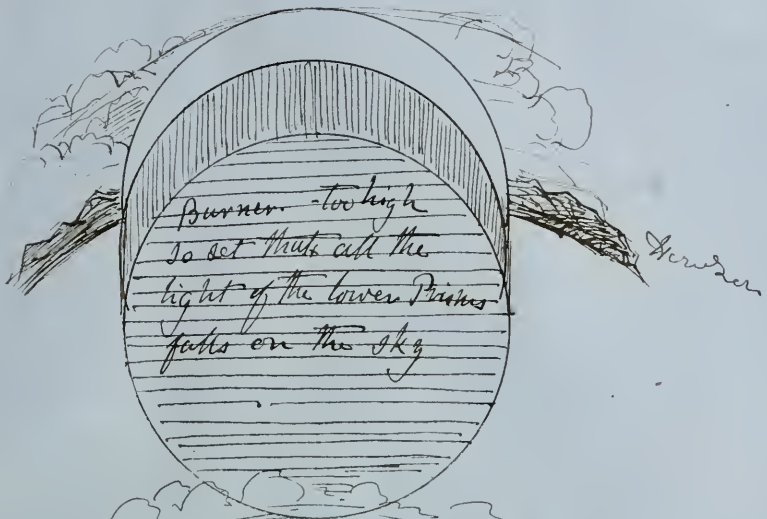 Burner too high
so set that all the
light of the lower Prisms
falls on the sky
Horizon